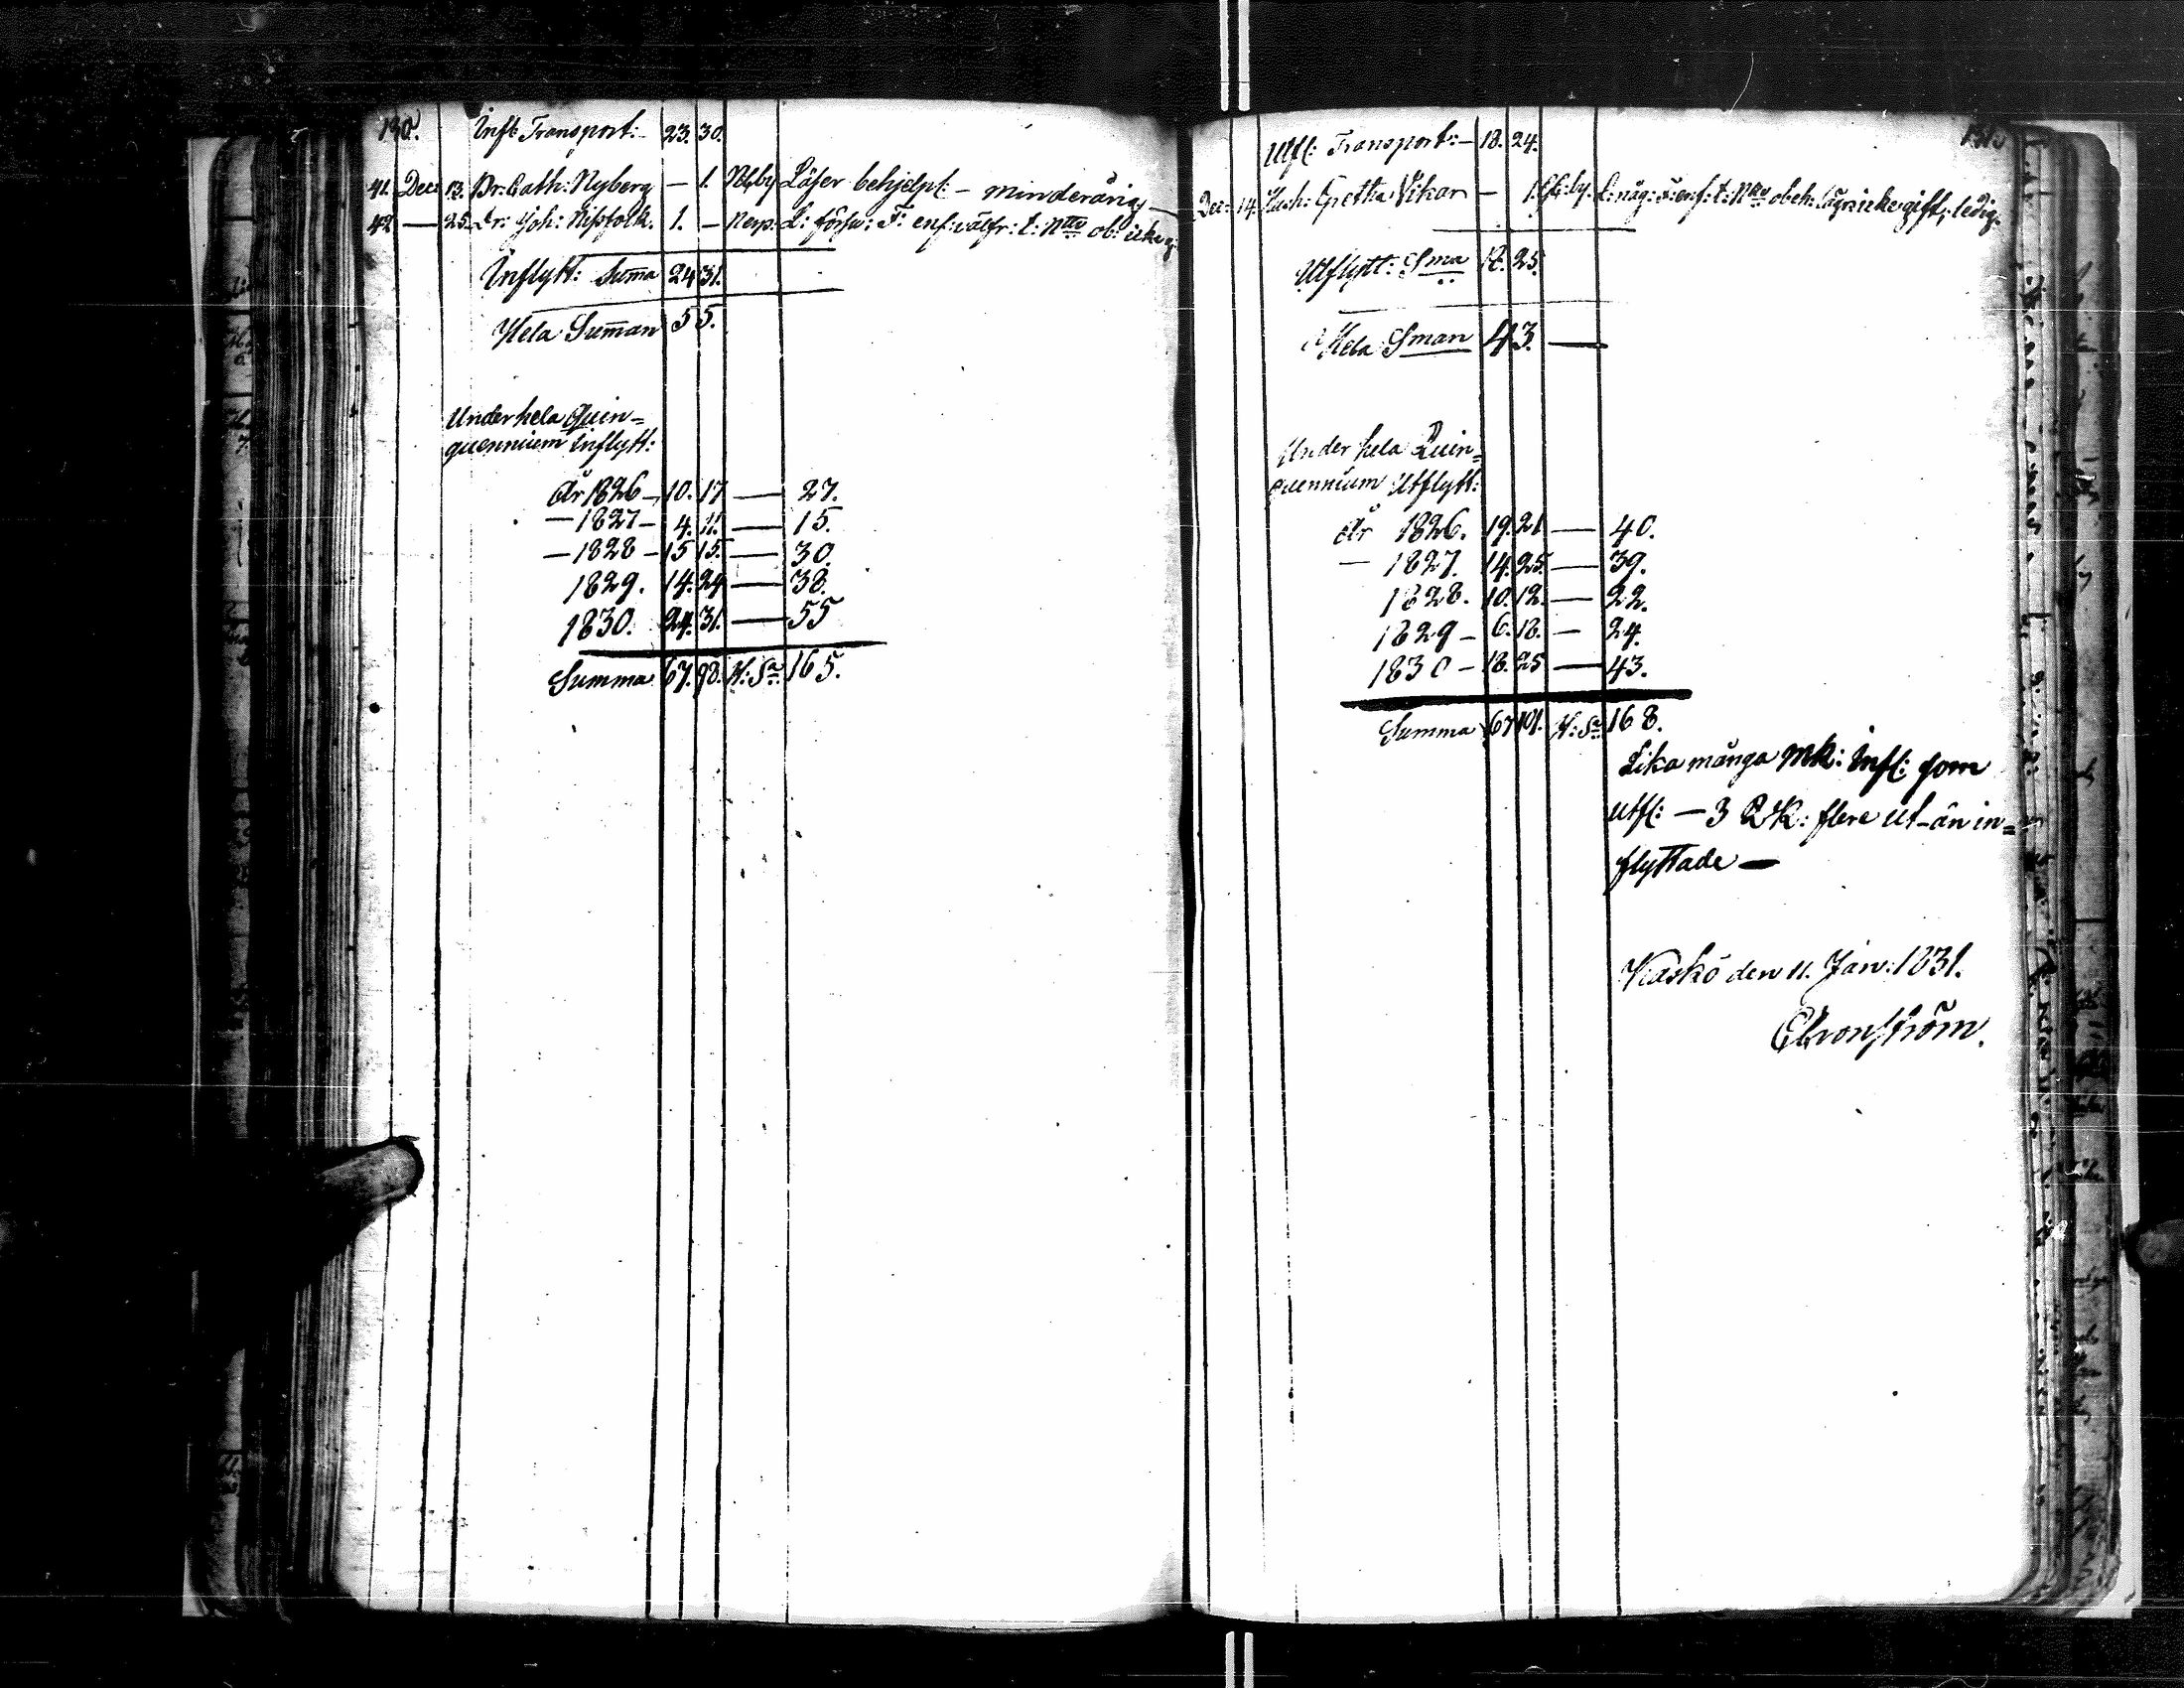 130.
Infl: Transport: 23. 30.
41. Dec: 13. Pr: Cath: Nyberg — 1. Nbg by Läser behjelpl: — minderårig —
42 — 25. Dr: Joh: Nissfolk. 1. — Nerp. L: försv: F: enf: välfr: t: Nttv ob: icke g:
Inflytt: Suma 24 31.
Hela Suman 55.
Under hela Quin=
quennium Inflytt:
År 1826 — 10. 17 — 27.
— 1827 — 4. 11. — 15.
— 1828 — 15 15. — 30.
1829. 14. 24 — 38.
1830. 24. 31. — 55
Summa 67. 98. H: Sa 165.
131.
Utfl: Transport: — 18. 24.
Dec: 14. Gretha Vikar — 1. by. L: någ: enf: t: Nttv obeh: icke gift, ledig.
Utflytt: Sma 18. 25.
Hela Sman 43. —
Under hela Quin=
quennium Utflytt:
År 1826. 19. 21 — 40.
— 1827. 14. 25. — 39.
1828. 10. 12. — 22.
1829 — 6. 18. — 24.
1830 — 18. 25 — 43.
Summa 67 101. H: Sa 168.
Lika många Mk: Infl: som
utfl: — 3 Qk: flere ut- än in=
flyttade —
Kaskö den 11. Jan: 1831.